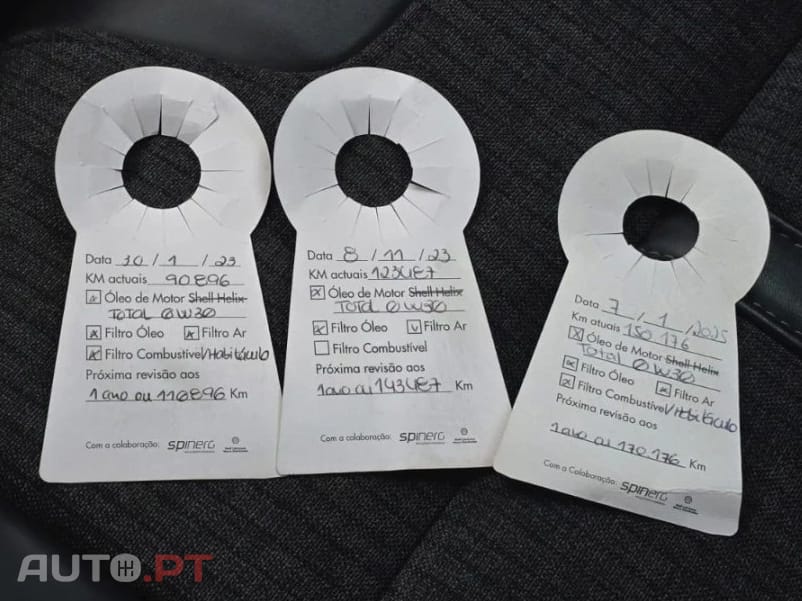 Data 10/1/23
KM actuais 90896
Óleo de Motor Shell Helix
TOTAL 0W30
Filtro Óleo Filtro Ar
Filtro Combustível/Habitáculo
Próxima revisão aos
1 ano ou 110896 Km
Com a colaboração: spinerg
Data 8/11/23
KM actuais 123487
Óleo de Motor Shell Helix
TOTAL 0W30
Filtro Óleo Filtro Ar
Filtro Combustível
Próxima revisão aos
1 ano ou 143487 Km
Com a colaboração: spinerg
Data 7/1/2025
Km atuais 150176
Óleo de Motor Shell Helix
Total 0W30
Filtro Óleo Filtro Ar
Filtro Combustível/Habitáculo
Próxima revisão aos
1 ano ou 170.176 Km
Com a Colaboração: spinerg
AUTO.PT